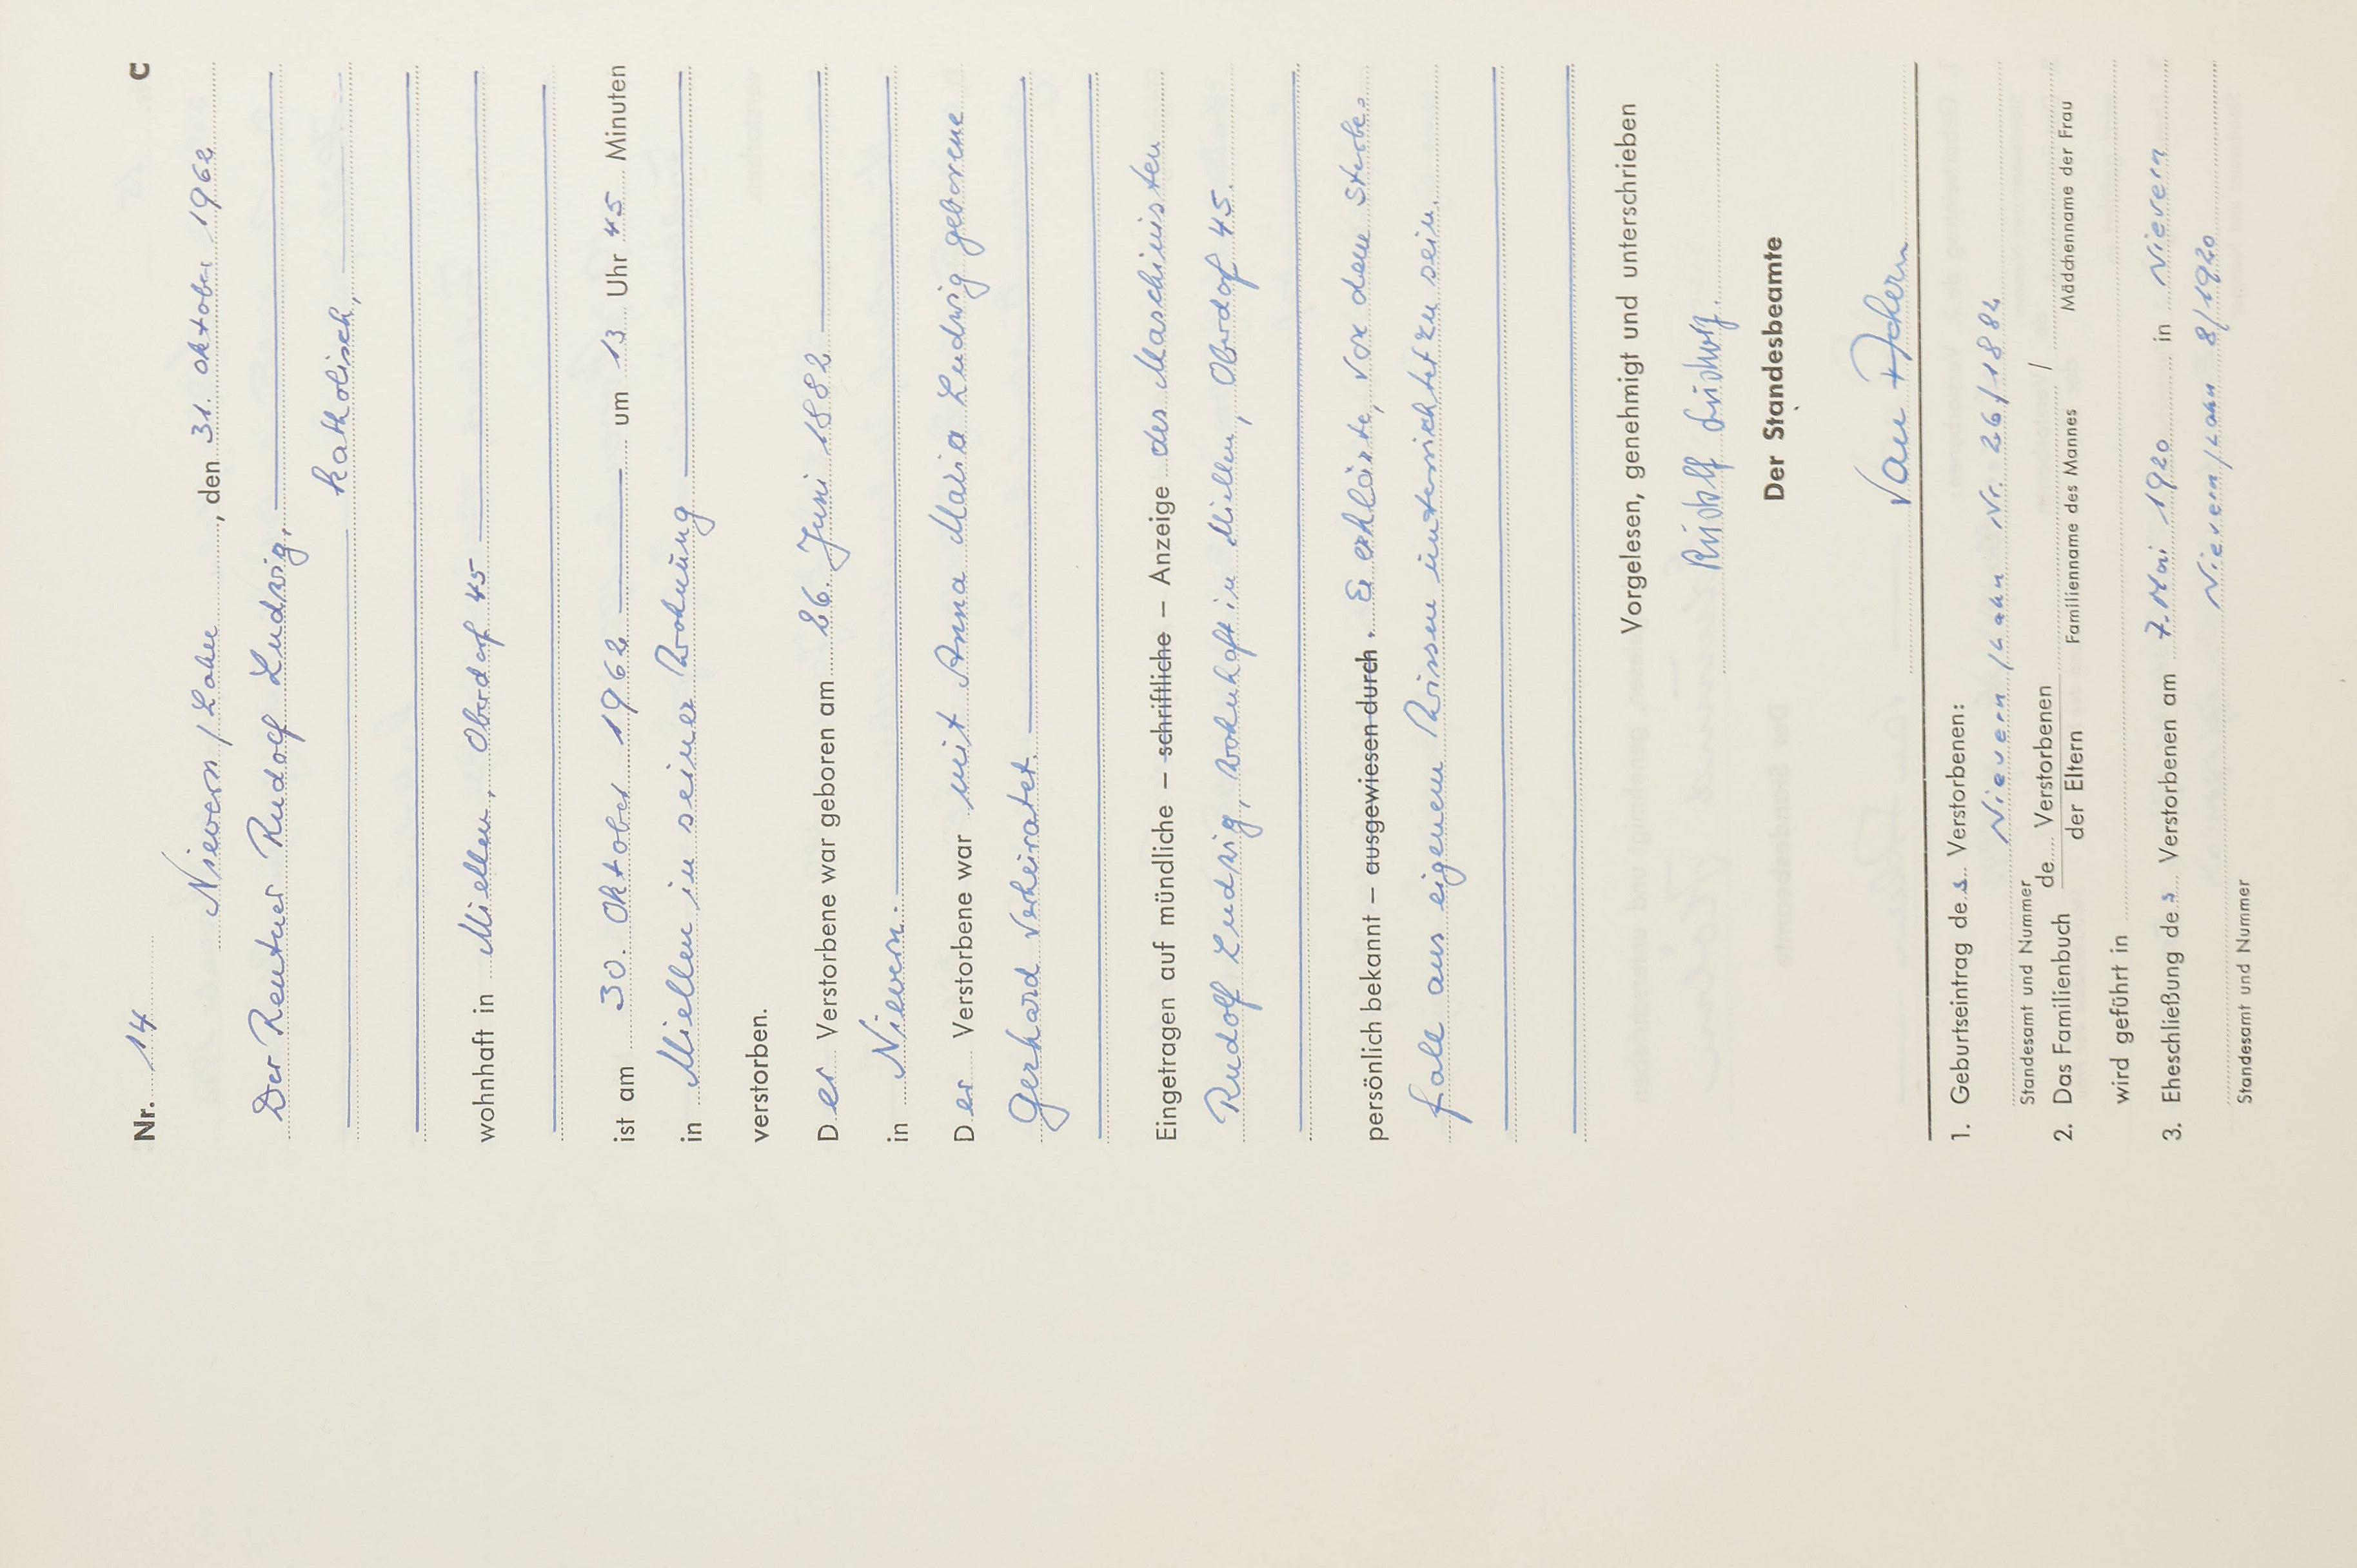 Nr. 14 C
Nievern/Lahn, den 31. Oktober 1962
Der Rentner Rudolf Ludwig,
katholisch,
wohnhaft in Miellen, Oberdorf 45
ist am 30. Oktober 1962 um 13 Uhr 45 Minuten
in Miellen in seiner Wohnung
verstorben.
Der Verstorbene war geboren am 26. Juni 1882
in Nievern.
Der Verstorbene war mit Anna Maria Ludwig geborene
Gerhard verheiratet.
Eingetragen auf mündliche – schriftliche – Anzeige des Maschinisten
Rudolf Ludwig, wohnhaft in Miellen, Oberdorf 45.
persönlich bekannt – ausgewiesen durch . Er erklärte, von dem Sterbe-
fall aus eigenem Wissen unterrichtet zu sein.
Vorgelesen, genehmigt und unterschrieben
Rudolf Ludwig.
Der Standesbeamte
van
1. Geburtseintrag des Verstorbenen:
Nievern/Lahn Nr. 26/1882
Standesamt und Nummer
2. Das Familienbuch de Verstorbenen /
der Eltern Familienname des Mannes Mädchenname der Frau
wird geführt in
3. Eheschließung des Verstorbenen am 7. Mai 1920 in Nievern
Nievern/Lahn 8/1920
Standesamt und Nummer